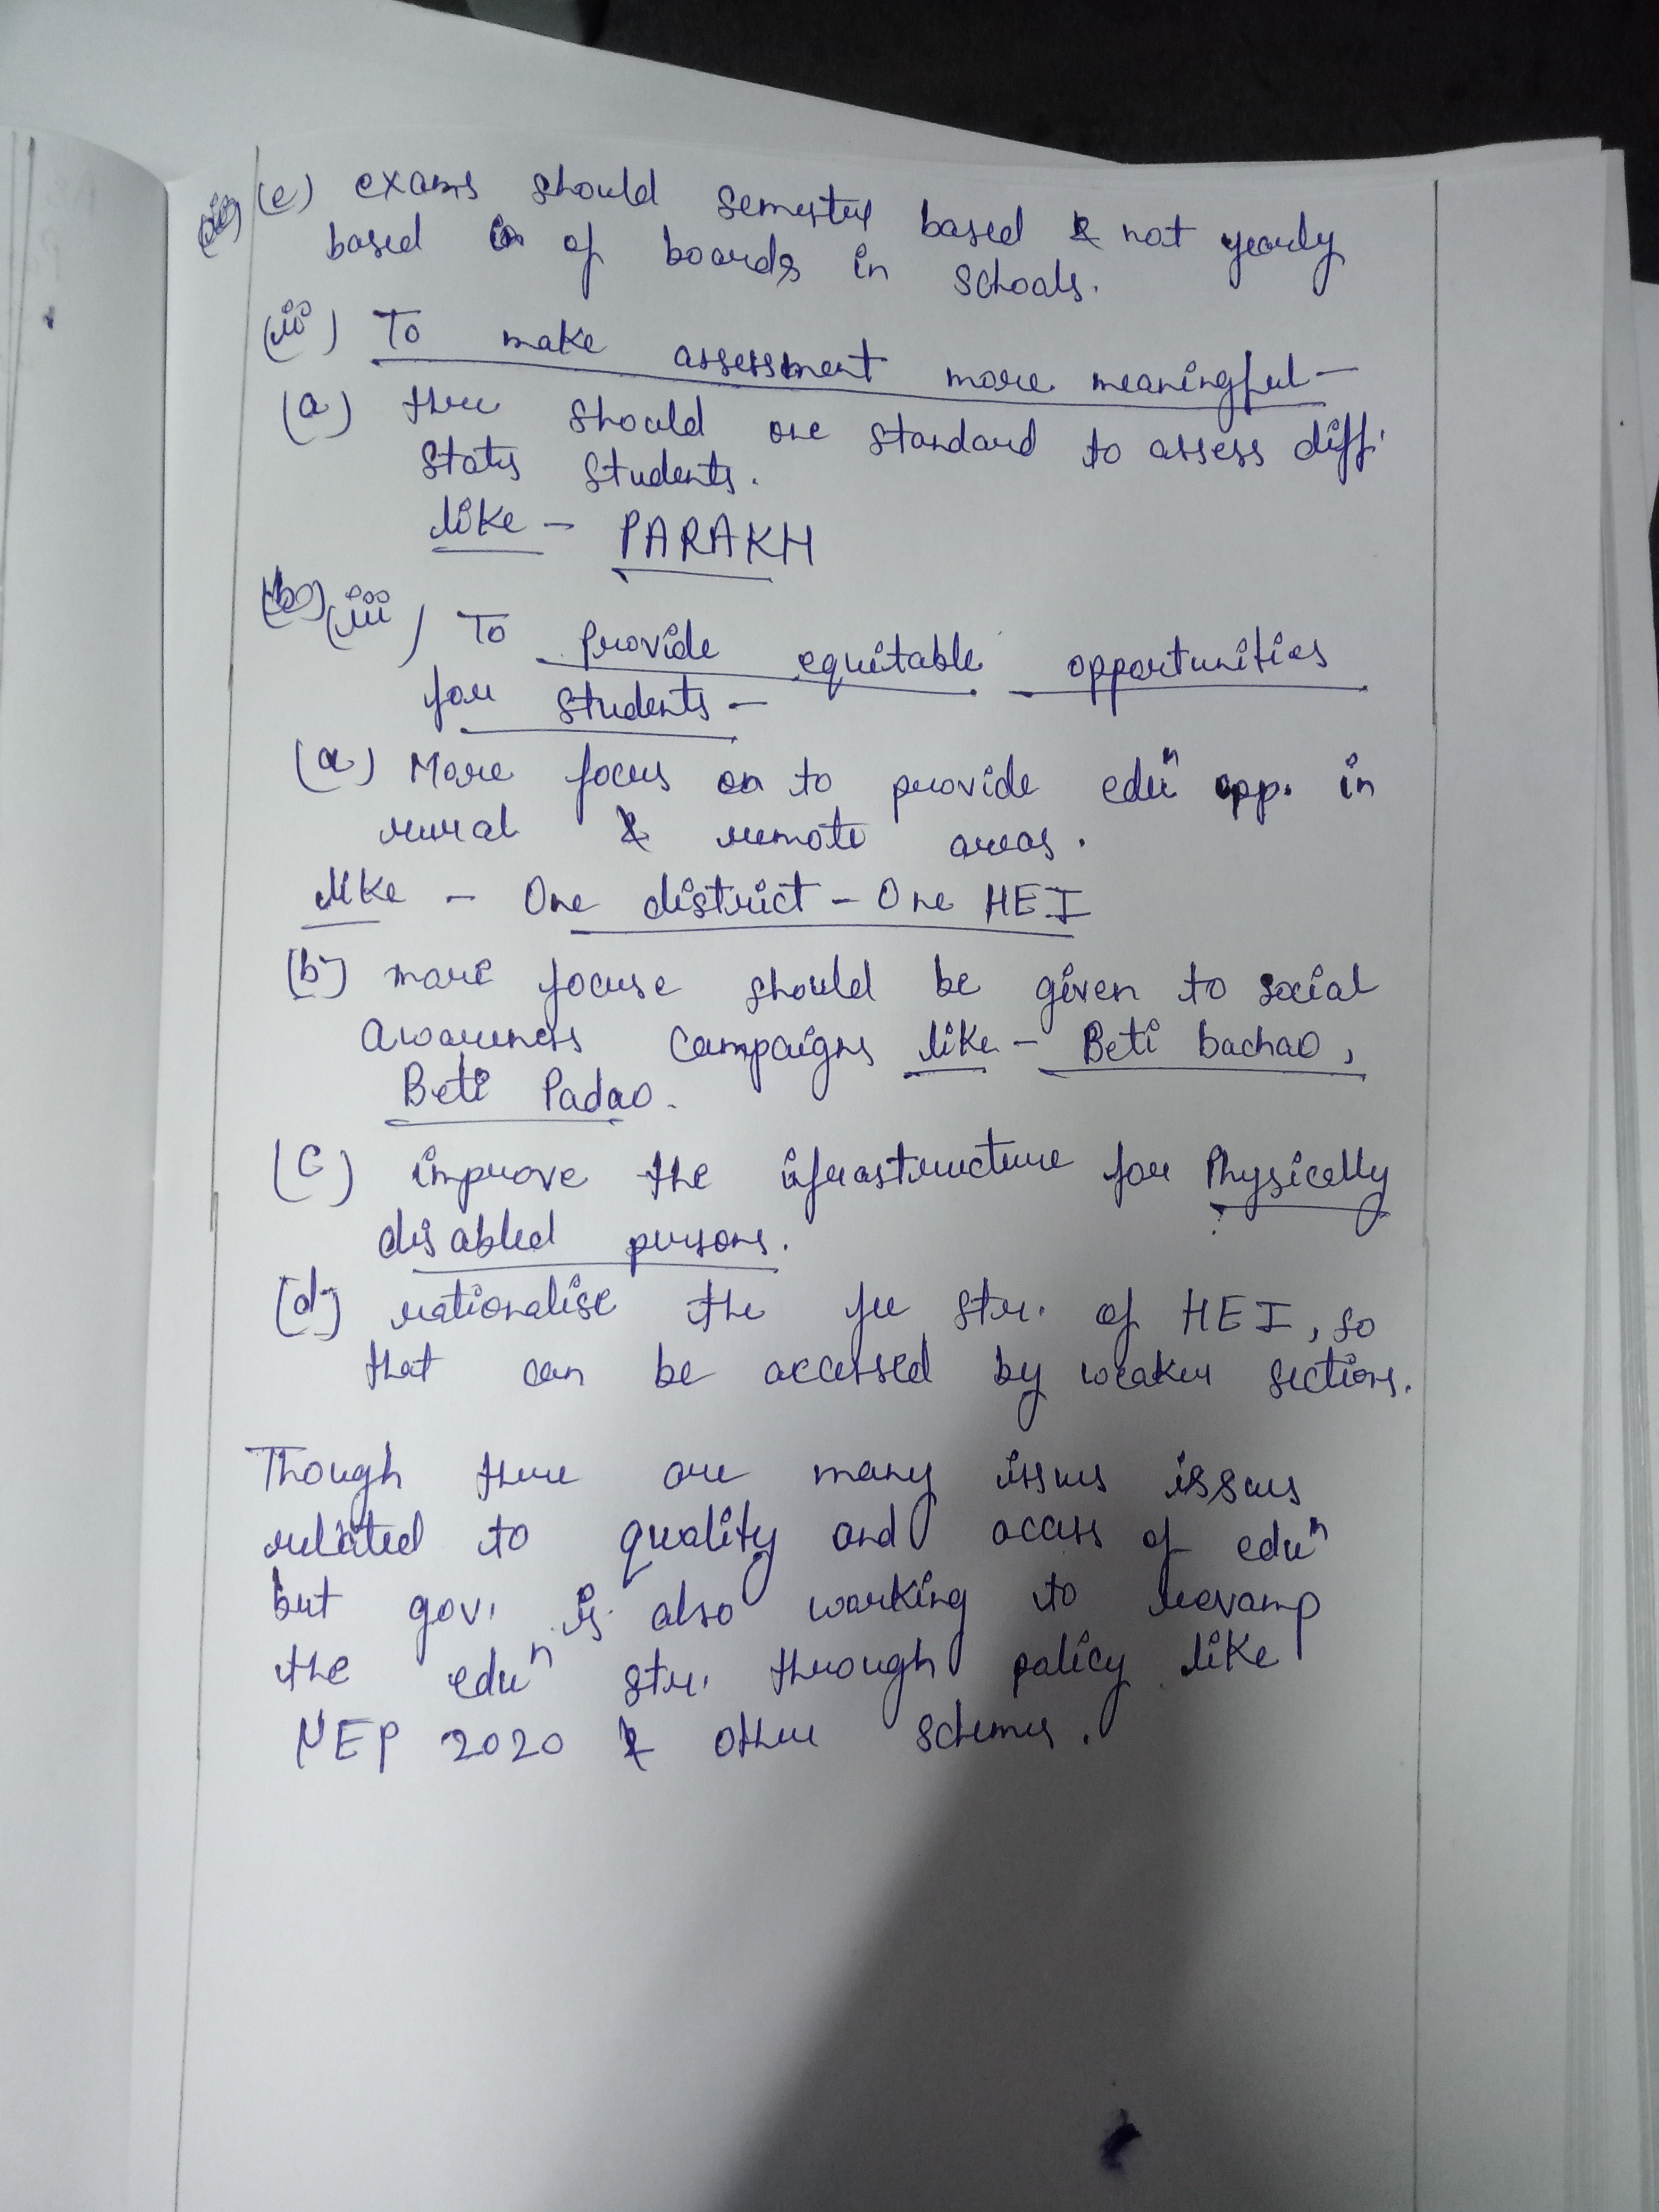 (e) exams should semester based & not yearly
based of boards in schools.
(ii) To make assessment more meaningful -
(a) there should one standard to assess diff.
States students.
like - PARAKH
(iii) To provide equitable opportunities
for students -
(a) More focus on to provide eduⁿ opp. in
rural & remote areas.
like - One district - One HEI
(b) more focuse should be given to social
awareness campaigns like - Beti bachao,
Beti Padao.
(c) improve the ifrastructure for Physically
disabled persons.
(d) rationalise the fee str. of HEI, so
that can be accessed by weaker sections.
Though there are many issues issues
related to quality and access of eduⁿ
but gov. is also working to revamp
the eduⁿ str. through policy like
NEP 2020 & other schemes.